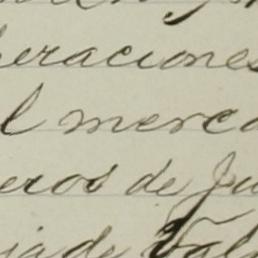 eraciones
l merca
eros de Ju
ia de Val